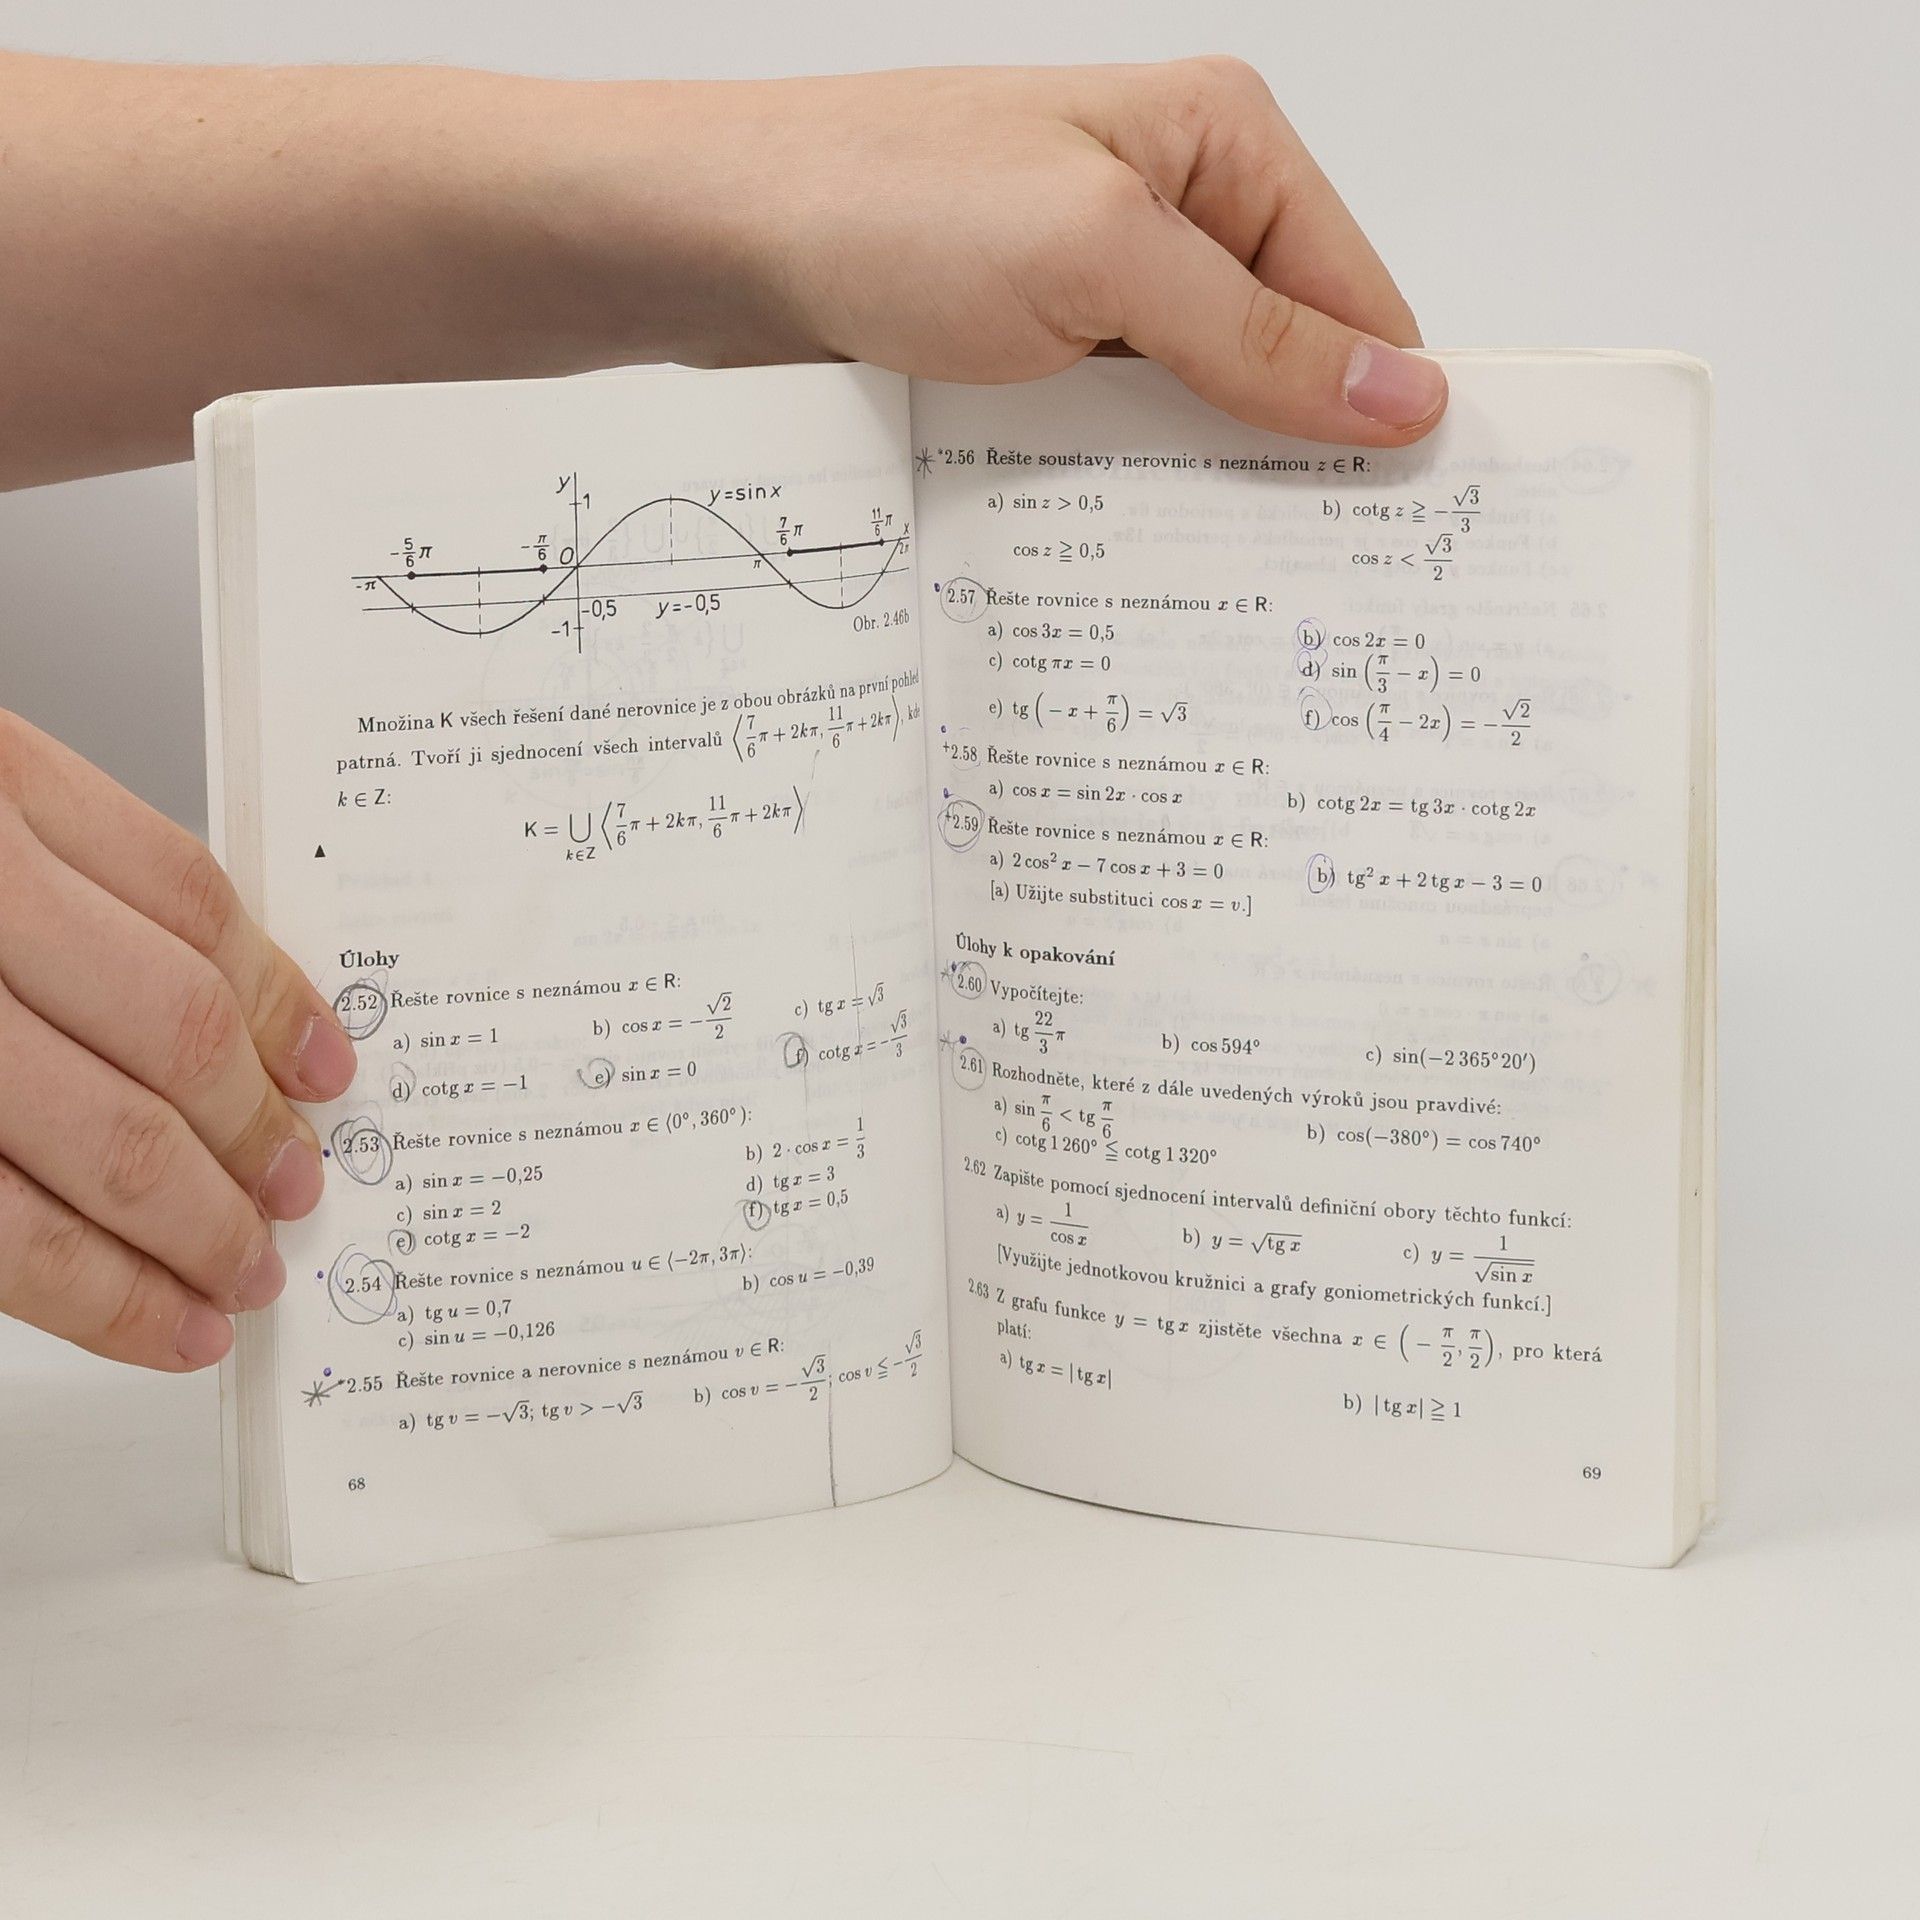 y
1
y=sin x
-5/6 π
-π/6
O
7/6 π
11/6 π
x
-π
π
2π
-0,5
y=-0,5
-1
Obr. 2.46b
Množina K všech řešení dané nerovnice je z obou obrázků na první pohled
patrná. Tvoří ji sjednocení všech intervalů ⟨7/6 π + 2kπ, 11/6 π + 2kπ⟩, kde
k ∈ Z:
K = ⋃ k∈Z ⟨7/6 π + 2kπ, 11/6 π + 2kπ⟩
▲
Úlohy
2.52 Řešte rovnice s neznámou x ∈ R:
a) sin x = 1 b) cos x = −√2/2 c) tg x = √3
d) cotg x = −1 e) sin x = 0 f) cotg x = −√3/3
2.53 Řešte rovnice s neznámou x ∈ ⟨0°, 360°):
a) sin x = −0,25 b) 2 · cos x = 1/3
c) sin x = 2 d) tg x = 3
e) cotg x = −2 f) tg x = 0,5
2.54 Řešte rovnice s neznámou u ∈ ⟨−2π, 3π⟩:
a) tg u = 0,7 b) cos u = −0,39
c) sin u = −0,126
*2.55 Řešte rovnice a nerovnice s neznámou v ∈ R:
a) tg v = −√3; tg v > −√3 b) cos v = −√3/2; cos v ≦ −√3/2
68
*2.56 Řešte soustavy nerovnic s neznámou z ∈ R:
a) sin z > 0,5 b) cotg z ≧ −√3/3
cos z ≧ 0,5 cos z < √3/2
2.57 Řešte rovnice s neznámou x ∈ R:
a) cos 3x = 0,5 b) cos 2x = 0
c) cotg πx = 0 d) sin (π/3 − x) = 0
e) tg (−x + π/6) = √3 f) cos (π/4 − 2x) = −√2/2
+2.58 Řešte rovnice s neznámou x ∈ R:
a) cos x = sin 2x · cos x b) cotg 2x = tg 3x · cotg 2x
+2.59 Řešte rovnice s neznámou x ∈ R:
a) 2 cos² x − 7 cos x + 3 = 0 b) tg² x + 2 tg x − 3 = 0
[a) Užijte substituci cos x = v.]
Úlohy k opakování
2.60 Vypočítejte:
a) tg 22/3 π b) cos 594° c) sin(−2 365°20′)
2.61 Rozhodněte, které z dále uvedených výroků jsou pravdivé:
a) sin π/6 < tg π/6 b) cos(−380°) = cos 740°
c) cotg 1 260° ≦ cotg 1 320°
2.62 Zapište pomocí sjednocení intervalů definiční obory těchto funkcí:
a) y = 1/cos x b) y = √tg x c) y = 1/√sin x
[Využijte jednotkovou kružnici a grafy goniometrických funkcí.]
2.63 Z grafu funkce y = tg x zjistěte všechna x ∈ (−π/2, π/2), pro která
platí:
a) tg x = |tg x| b) |tg x| ≧ 1
69